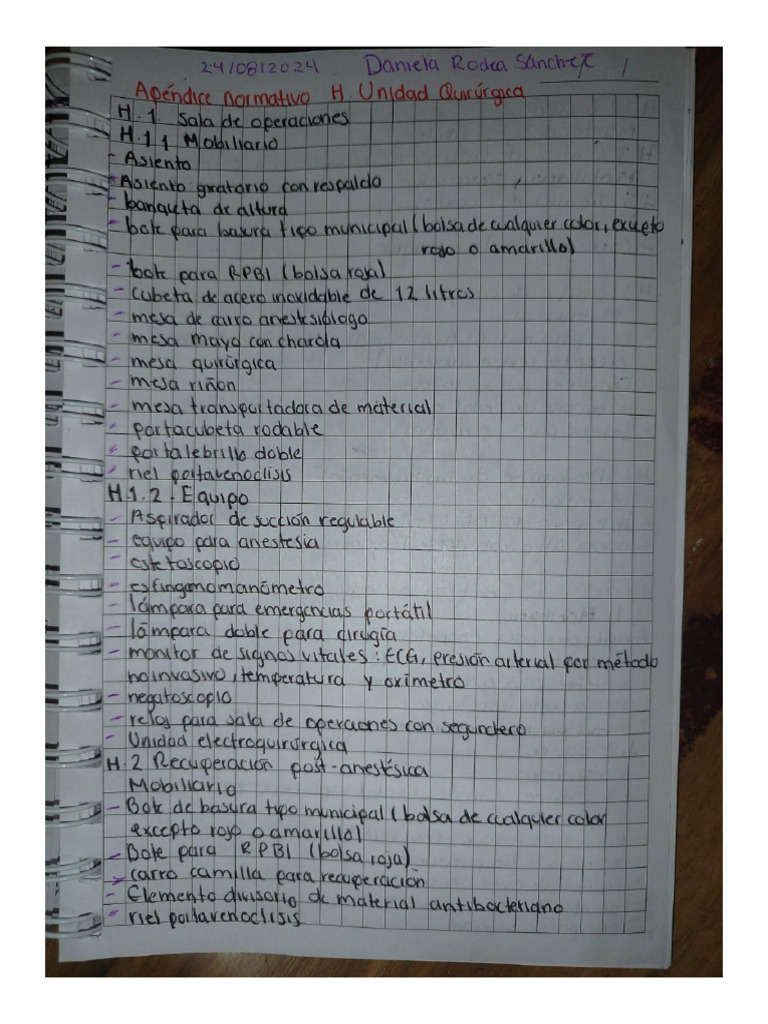 24/08/2024 Daniela Rodea Sánchez 1
Apéndice normativo H. Unidad Quirúrgica
H.1. Sala de operaciones
H.1.1 Mobiliario
- Asiento
- Asiento giratorio con respaldo
- banqueta de altura
- bote para basura tipo municipal (bolsa de cualquier color, excepto
rojo o amarillo)
- bote para RPBI (bolsa roja)
- cubeta de acero inoxidable de 12 litros
- mesa de carro anestesiólogo
- mesa mayo con charola
- mesa quirúrgica
- mesa riñon
- mesa transportadora de material
- portacubeta rodable
- portalebrillo doble
- riel portavenoclisis
H.1.2. Equipo
- Aspirador de succión regulable
- equipo para anestesia
- estetoscopio
- esfingomomanómetro
- lámpara para emergencias portátil
- lámpara doble para cirugía
- monitor de signos vitales: ECG, presión arterial por método
no invasivo, temperatura y oxímetro
- negatoscopio
- reloj para sala de operaciones con segundero
- Unidad electroquirúrgica
H.2 Recuperación post-anestésica
Mobiliario
- Bote de basura tipo municipal (bolsa de cualquier color
excepto rojo o amarillo)
- Bote para RPBI (bolsa roja)
- carro camilla para recuperación
- Elemento divisorio de material antibacteriano
- riel portavenoclisis